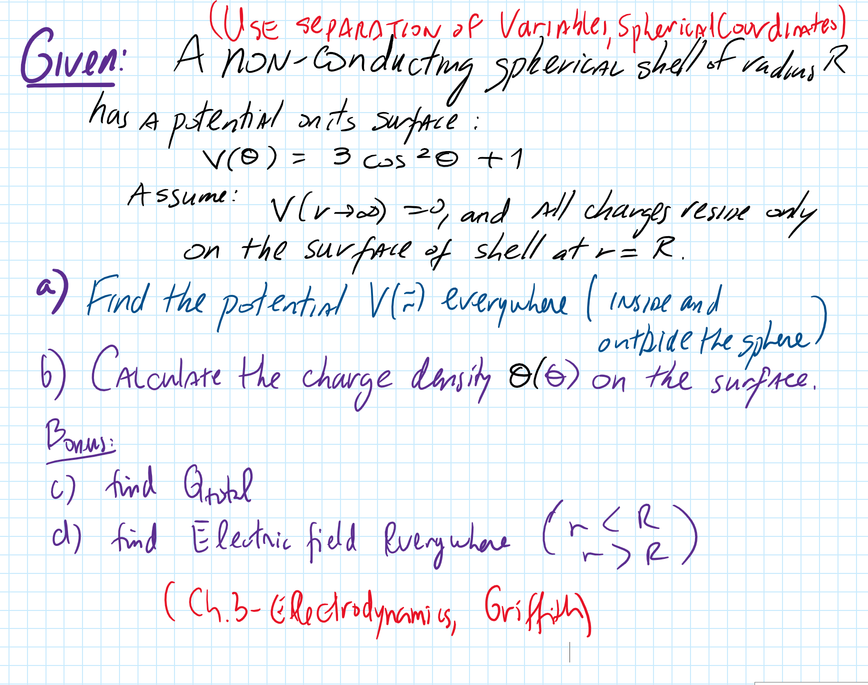 (Use separation of Variables, Spherical Coordinates)
Given: A non-conducting spherical shell of radius R
has a potential on its surface:
V(θ) = 3 cos²θ + 1
Assume: V(r→∞) = 0, and all charges reside only
on the surface of shell at r = R.
a) Find the potential V(r) everywhere (inside and
outside the sphere)
b) Calculate the charge density θ(θ) on the surface.
Bonus:
c) find Qtotal
d) find Electric field Everywhere (r < R
r > R)
(Ch.3-Electrodynamics, Griffith)